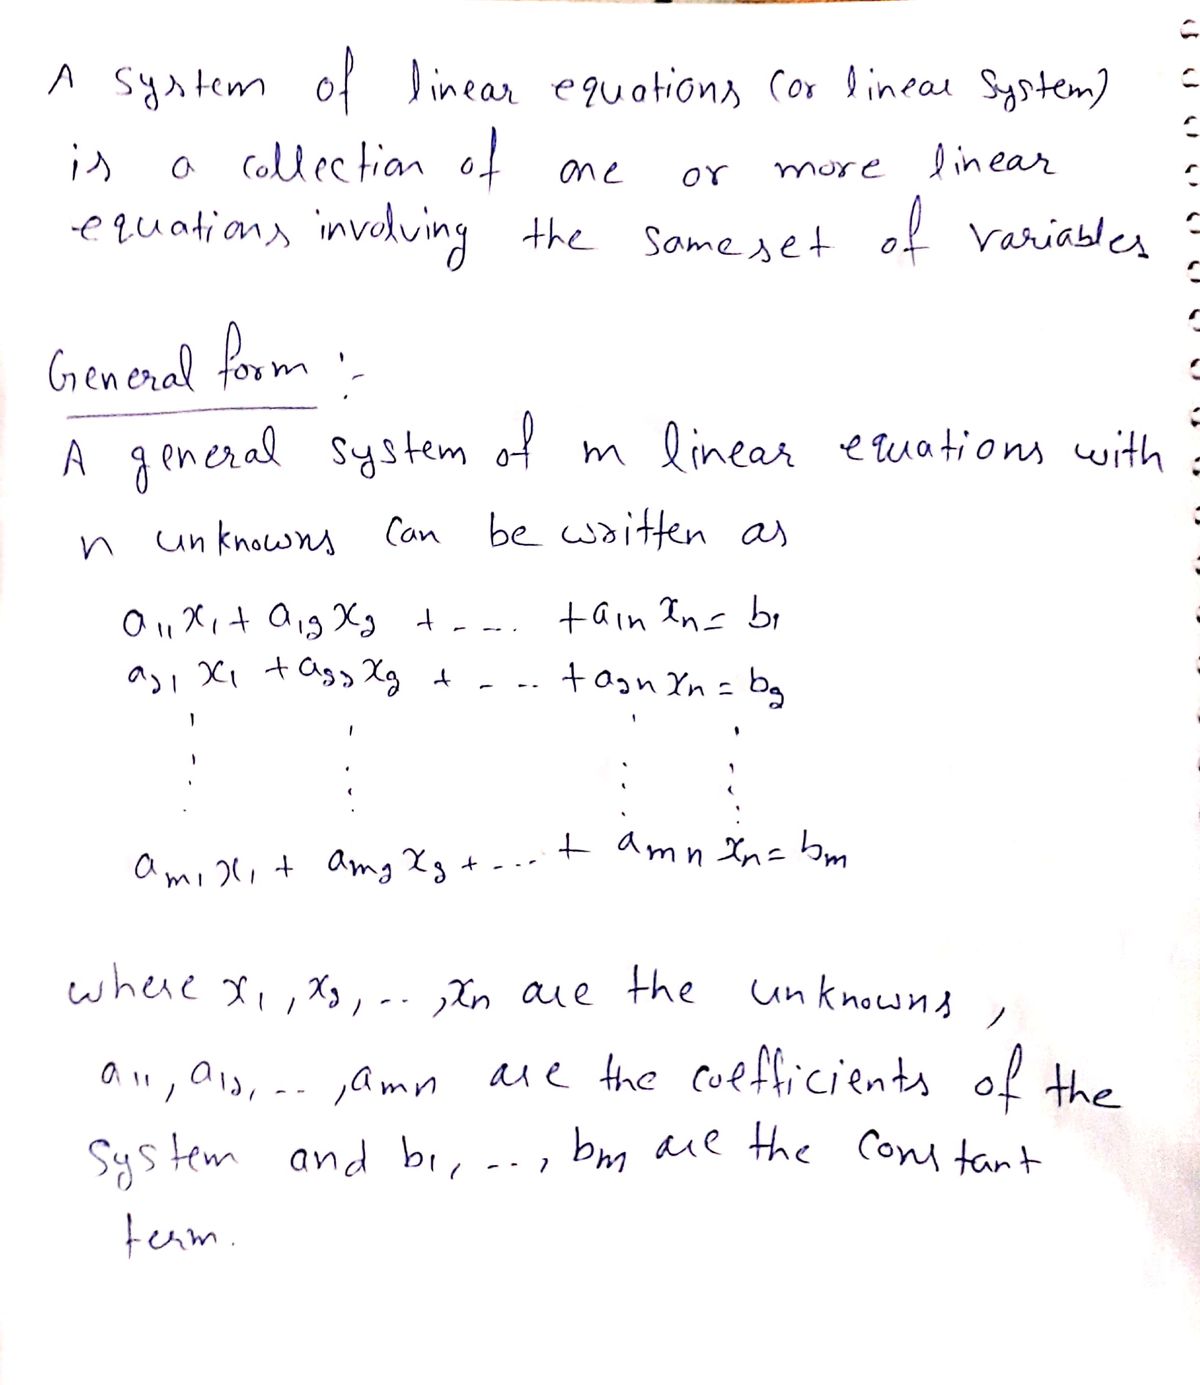 A system of linear equations (or linear system)
is a collection of one or more linear
equations involving the same set of variables
General form :-
A general system of m linear equations with
n unknowns can be written as
a₁₁x₁ + a₁₂x₂ + - - - . + a₁ₙ xₙ = b₁
a₂₁ x₁ + a₂₂x₂ + - - .. + a₂ₙ xₙ = b₂
aₘ₁x₁ + aₘ₂x₂ + - ... + aₘₙ xₙ = bₘ
where x₁, x₂, -- , xₙ are the unknowns,
a₁₁, a₁₂, -- , aₘₙ are the coefficients of the
system and b₁, --, bₘ are the constant
term.